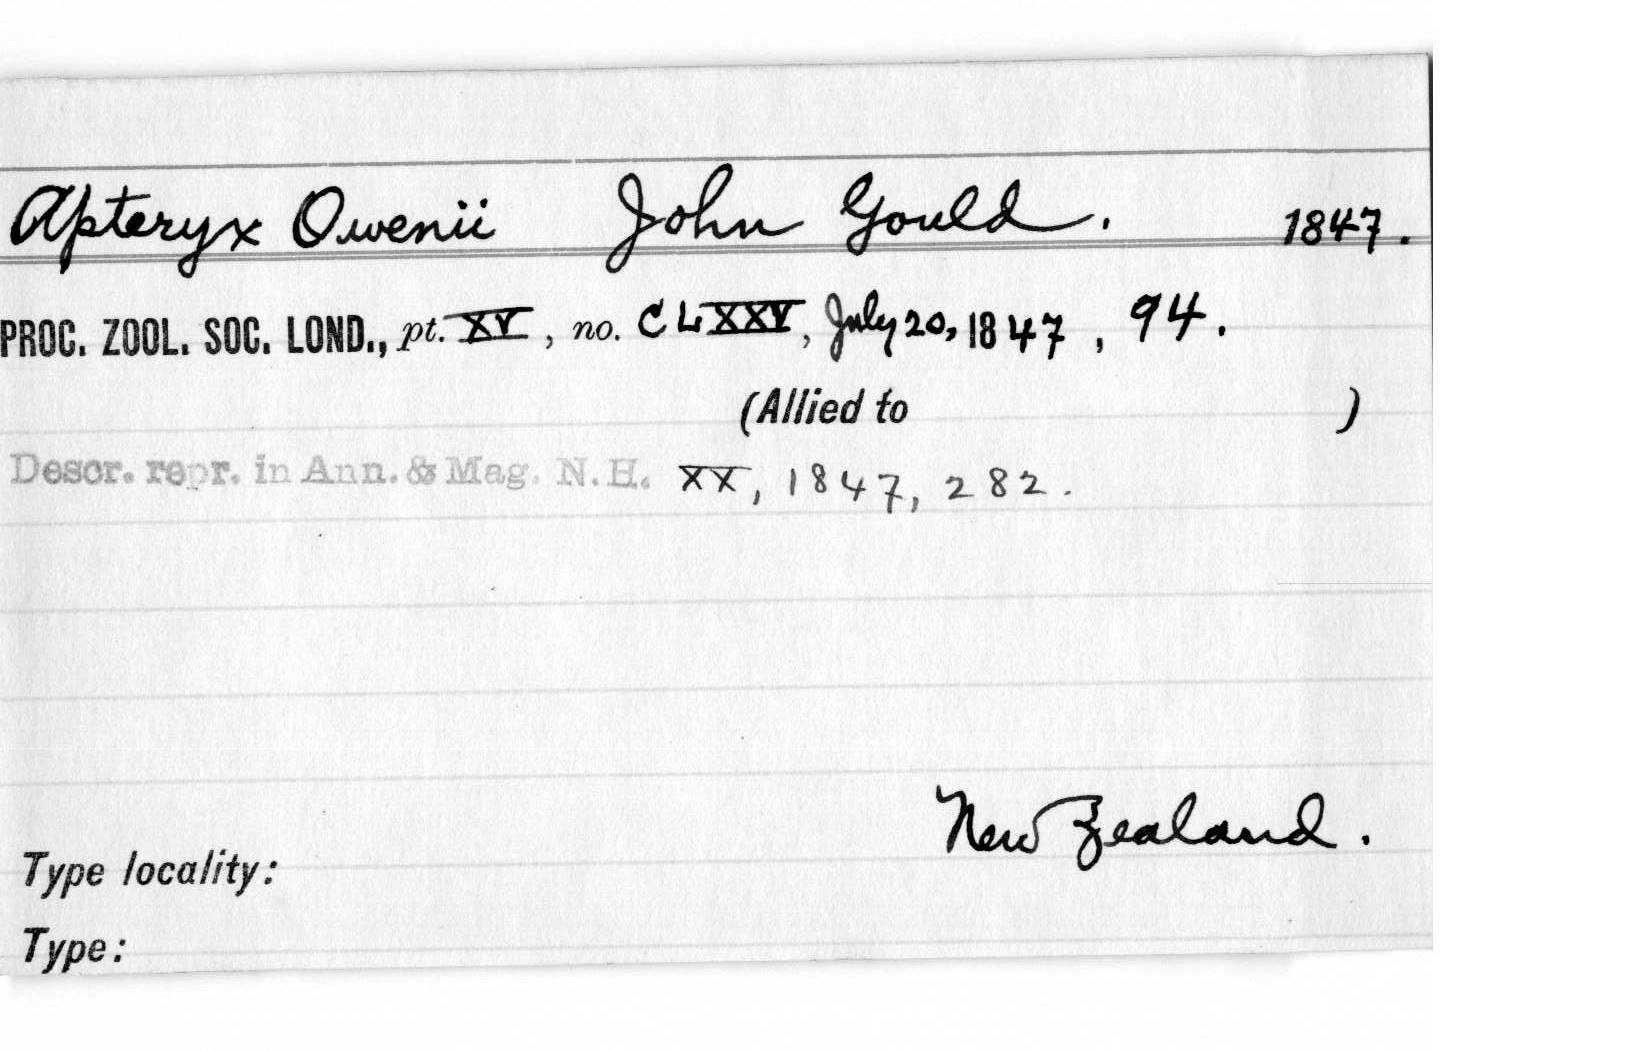 Apteryx Owenii John Gould. 1847.
PROC. ZOOL. SOC. LOND., pt. XV, no. CLXXV, July 20, 1847, 94.
(Allied to )
Descr. repr. in Ann. & Mag. N.H. XX, 1847, 282.
New Zealand.
Type locality:
Type: